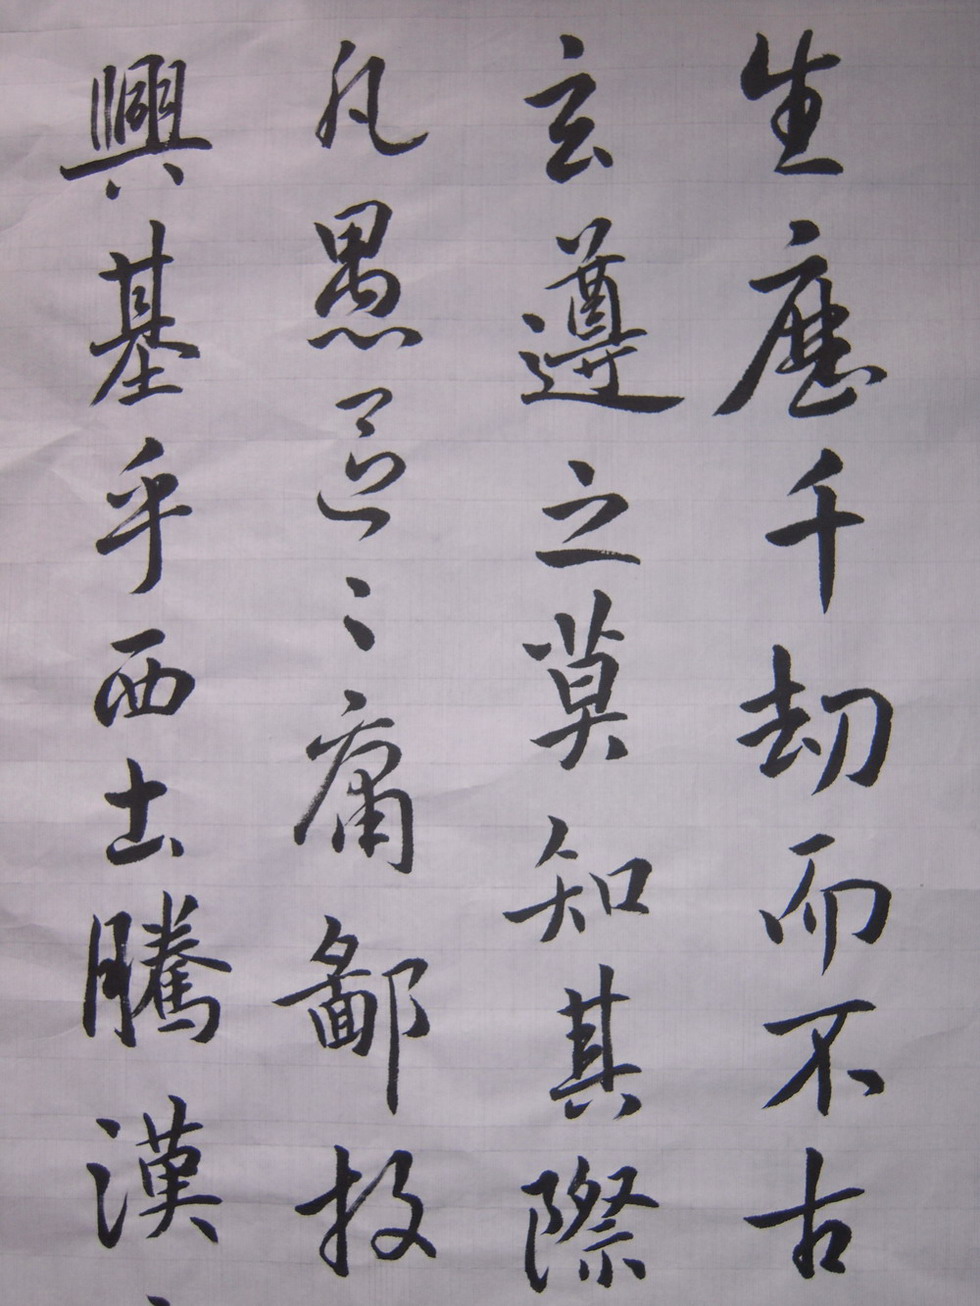 生歷千劫而不古
玄遵之莫知其際
凡愚區〻庸鄙投
興基乎西土騰漢